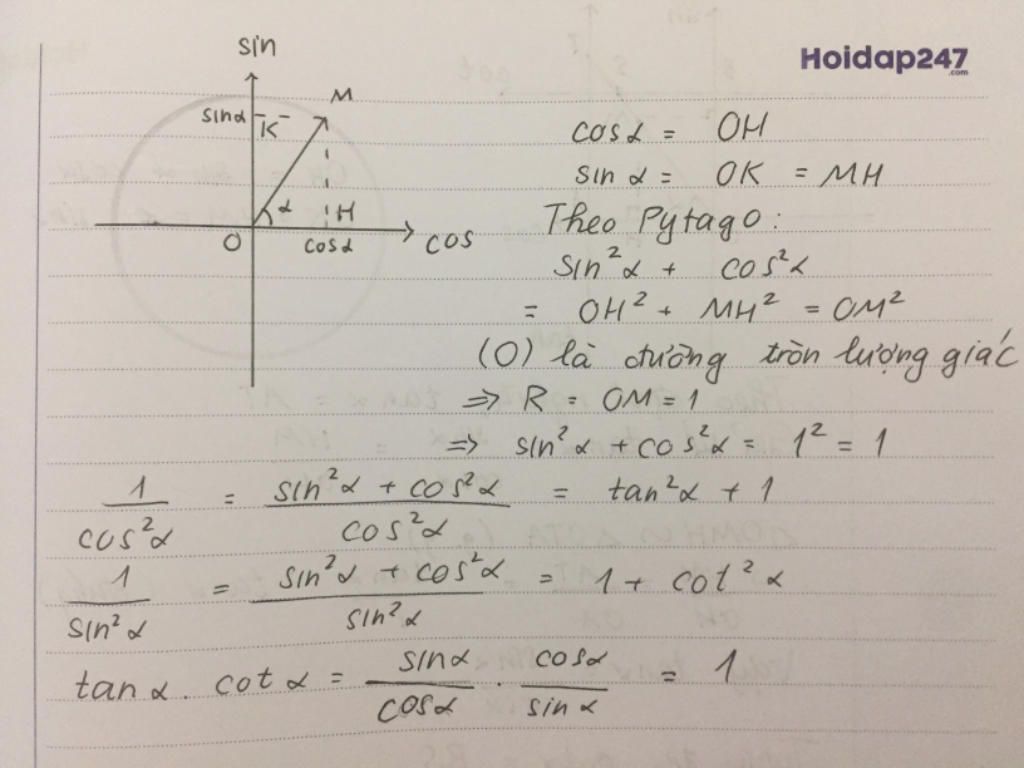 Hoidap247
.com
sin
M
sinα K
α H
O cosα cos
cosα = OH
sin α = OK = MH
Theo Pytago:
sin²α + cos²α
= OH² + MH² = OM²
(O) là đường tròn lượng giác
=> R = OM = 1
=> sin²α + cos²α = 1² = 1
1/cos²α = (sin²α + cos²α)/cos²α = tan²α + 1
1/sin²α = (sin²α + cos²α)/sin²α = 1 + cot²α
tan α . cot α = sinα/cosα . cosα/sinα = 1